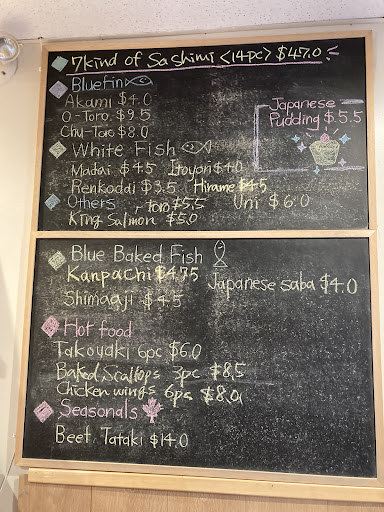 7kind of Sashimi <14pc> $47.0
Bluefin
Akami $4.0
O-Toro. $9.5
Chu-Toro $8.0
Japanese
Pudding $5.5
White Fish
Madai $4.5 Itoyori $4.0
Renkodai $3.5 Hirame $4.5
Others toro $5.5 Uni $6.0
King Salmon $5.0
Blue Baked Fish
Kanpachi $4.75
Japanese saba $4.0
Shimaaji $4.5
Hot food
Takoyaki 6pc $6.0
Baked Scallops 3pc $8.5
Chicken wings 6pc $8.0
Seasonals
Beef Tataki $14.0